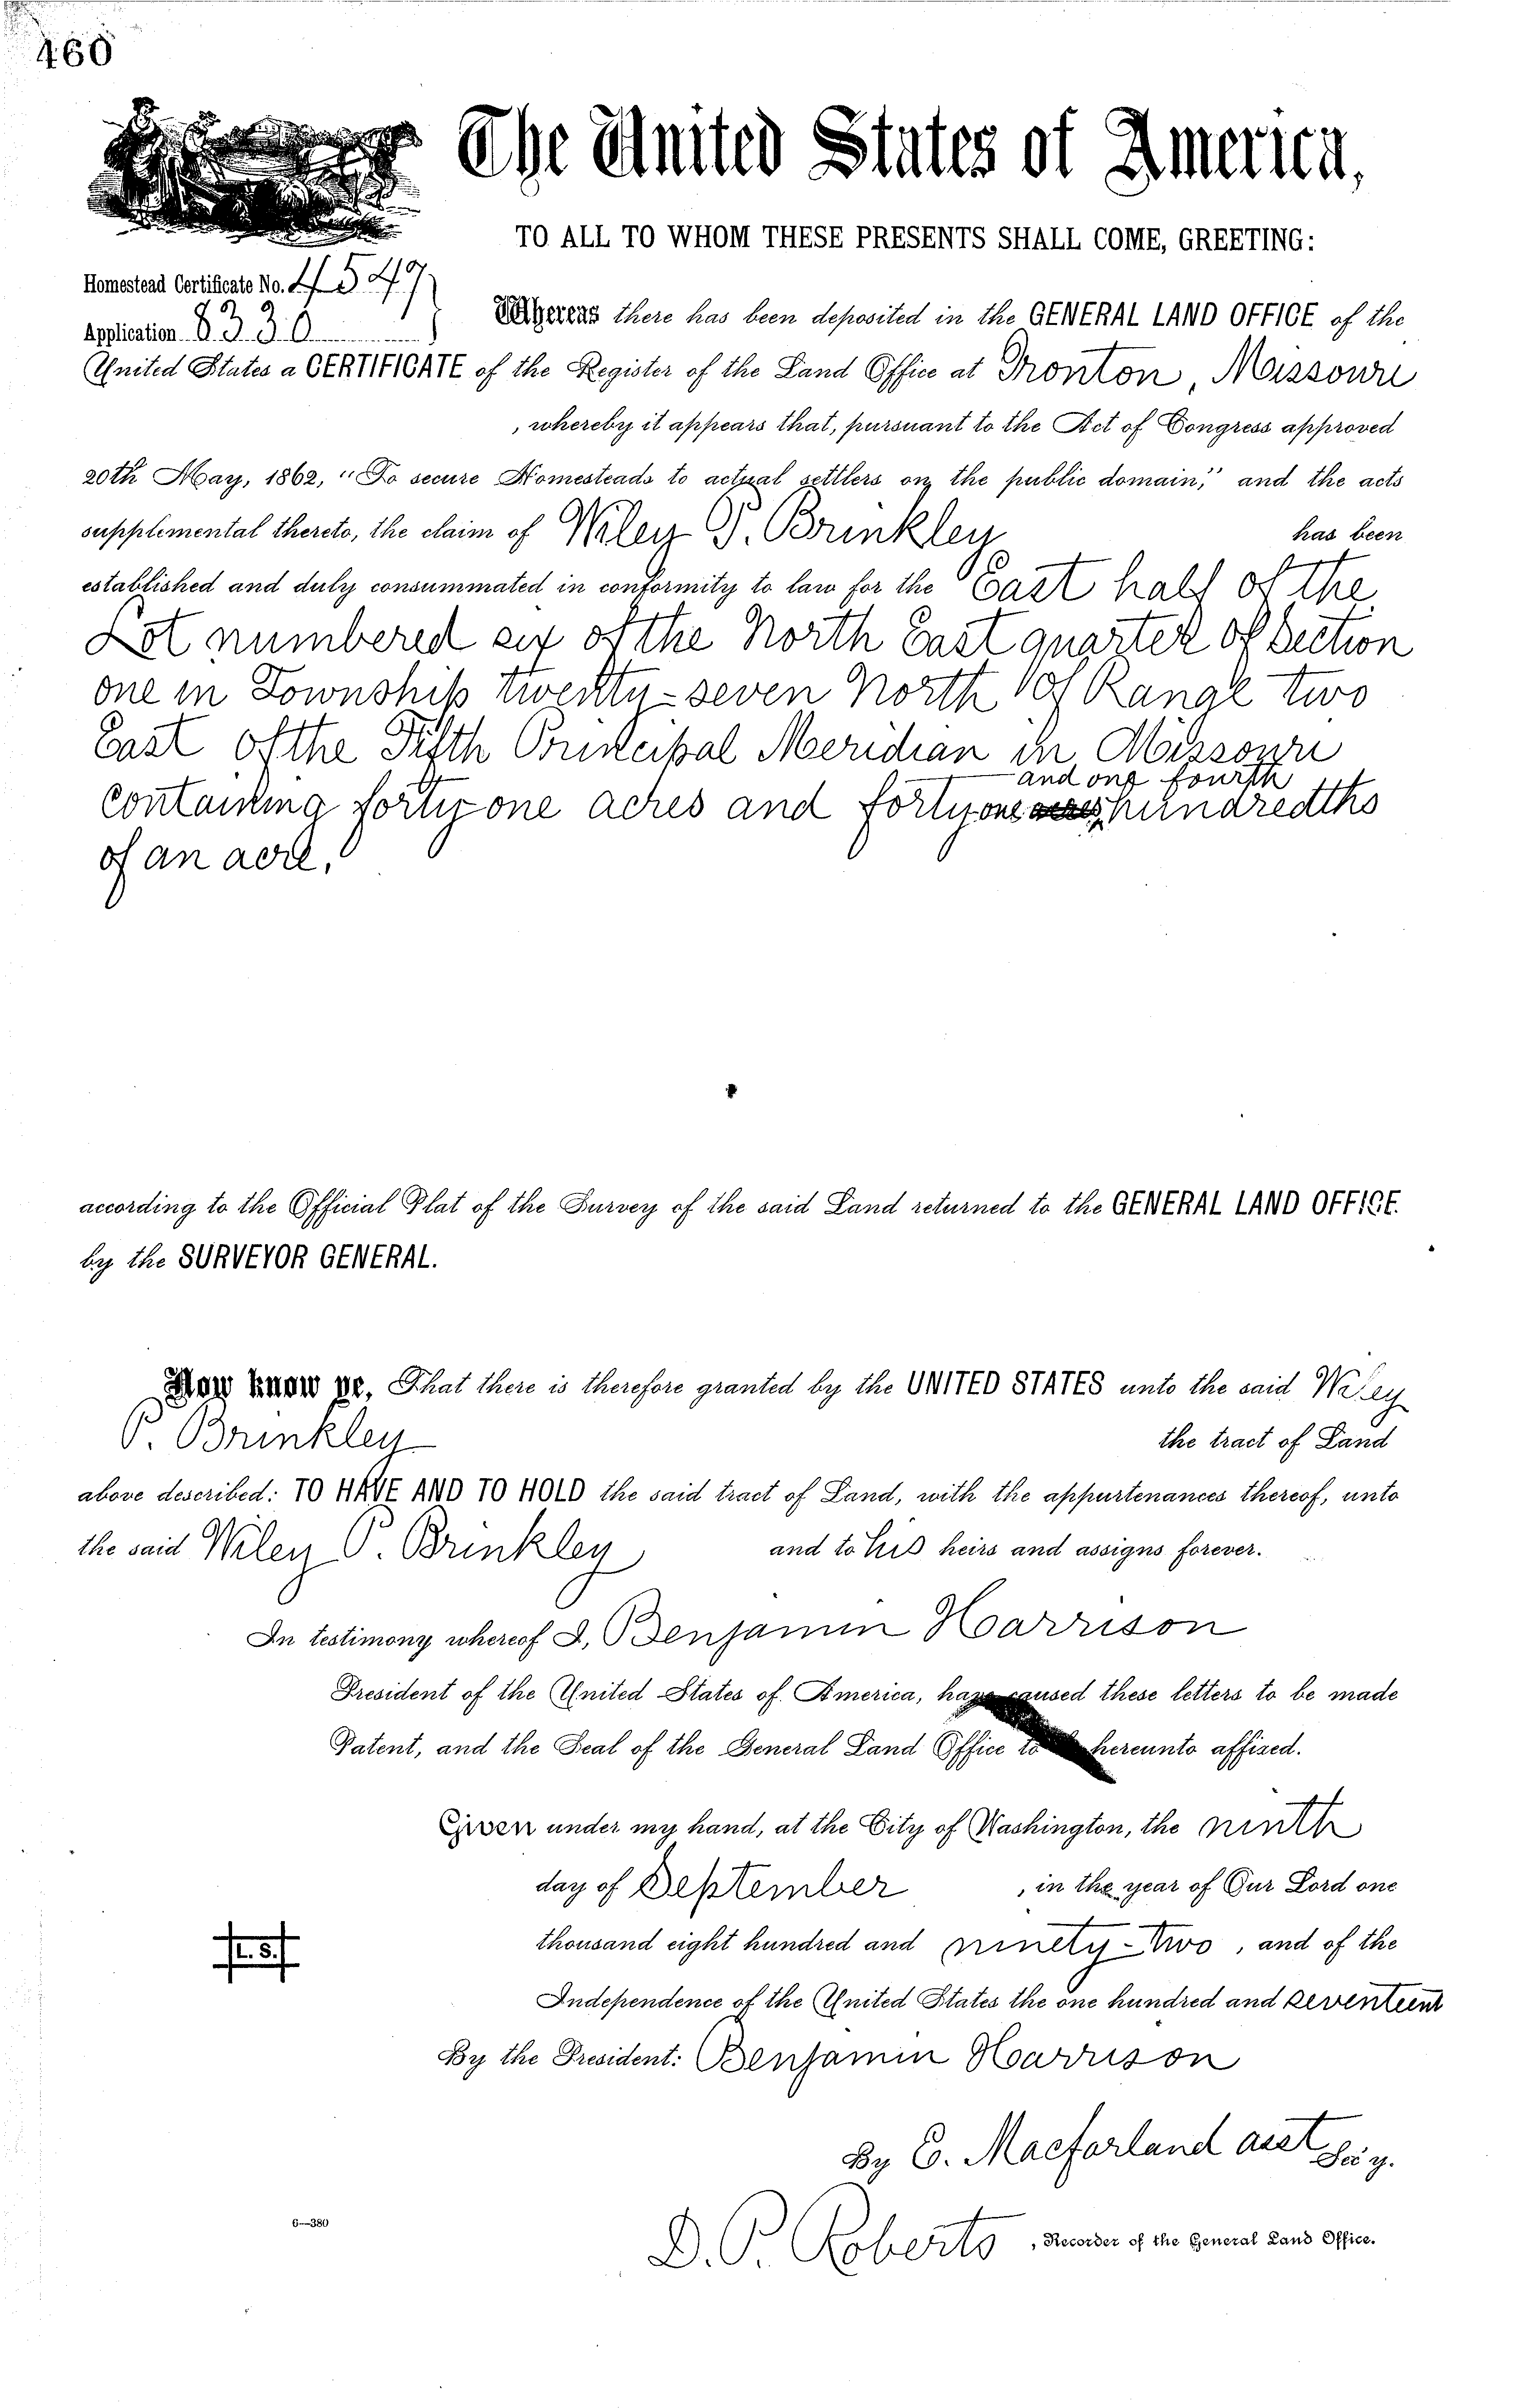 460
The United States of America,
TO ALL TO WHOM THESE PRESENTS SHALL COME, GREETING:
Homestead Certificate No. 4547
Application 8330
Whereas there has been deposited in the GENERAL LAND OFFICE of the
United States a CERTIFICATE of the Register of the Land Office at Ironton, Missouri
, whereby it appears that, pursuant to the Act of Congress approved
20th May, 1862, "To secure Homesteads to actual settlers on the public domain," and the acts
supplemental thereto, the claim of Wiley P. Brinkley has been
established and duly consummated in conformity to law for the East half of the
Lot numbered six of the North East quarter of Section
one in Township twenty-seven North of Range two
East of the Fifth Principal Meridian in Missouri
and one fourth
containing forty one acres and forty one hundredths
of an acre.
according to the Official Plat of the Survey of the said Land returned to the GENERAL LAND OFFICE
by the SURVEYOR GENERAL.
Now know ye, That there is therefore granted by the UNITED STATES unto the said Wiley
P. Brinkley the tract of Land
above described: TO HAVE AND TO HOLD the said tract of Land, with the appurtenances thereof, unto
the said Wiley P. Brinkley and to his heirs and assigns forever.
In testimony whereof I, Benjamin Harrison
President of the United States of America, have caused these letters to be made
Patent, and the Seal of the General Land Office to hereunto affixed.
Given under my hand, at the City of Washington, the ninth
day of September , in the year of Our Lord one
thousand eight hundred and ninety-two , and of the
L. S.
Independence of the United States the one hundred and seventeent
By the President: Benjamin Harrison
By E. Macfarland asst Sec'y.
6—380
D. P. Roberts , Recorder of the General Land Office.